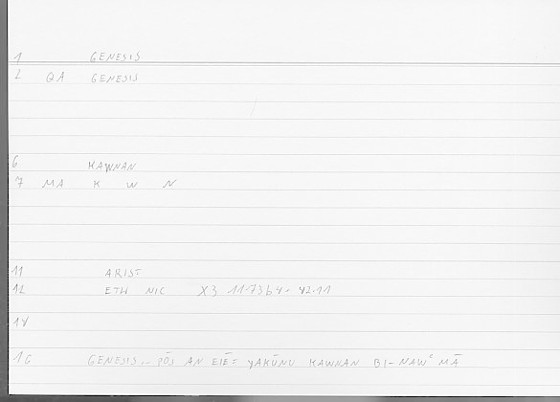 1 GENESIS
2 QA GENESIS
6 KAWNAN
7 MA K W N
11 ARIST
12 ETH NIC X3 1173b4- 42.11
14
16 GENESIS... PŌS AN EIĒ= YAKŪNU KAWNAN BI-NAWʿ MĀ